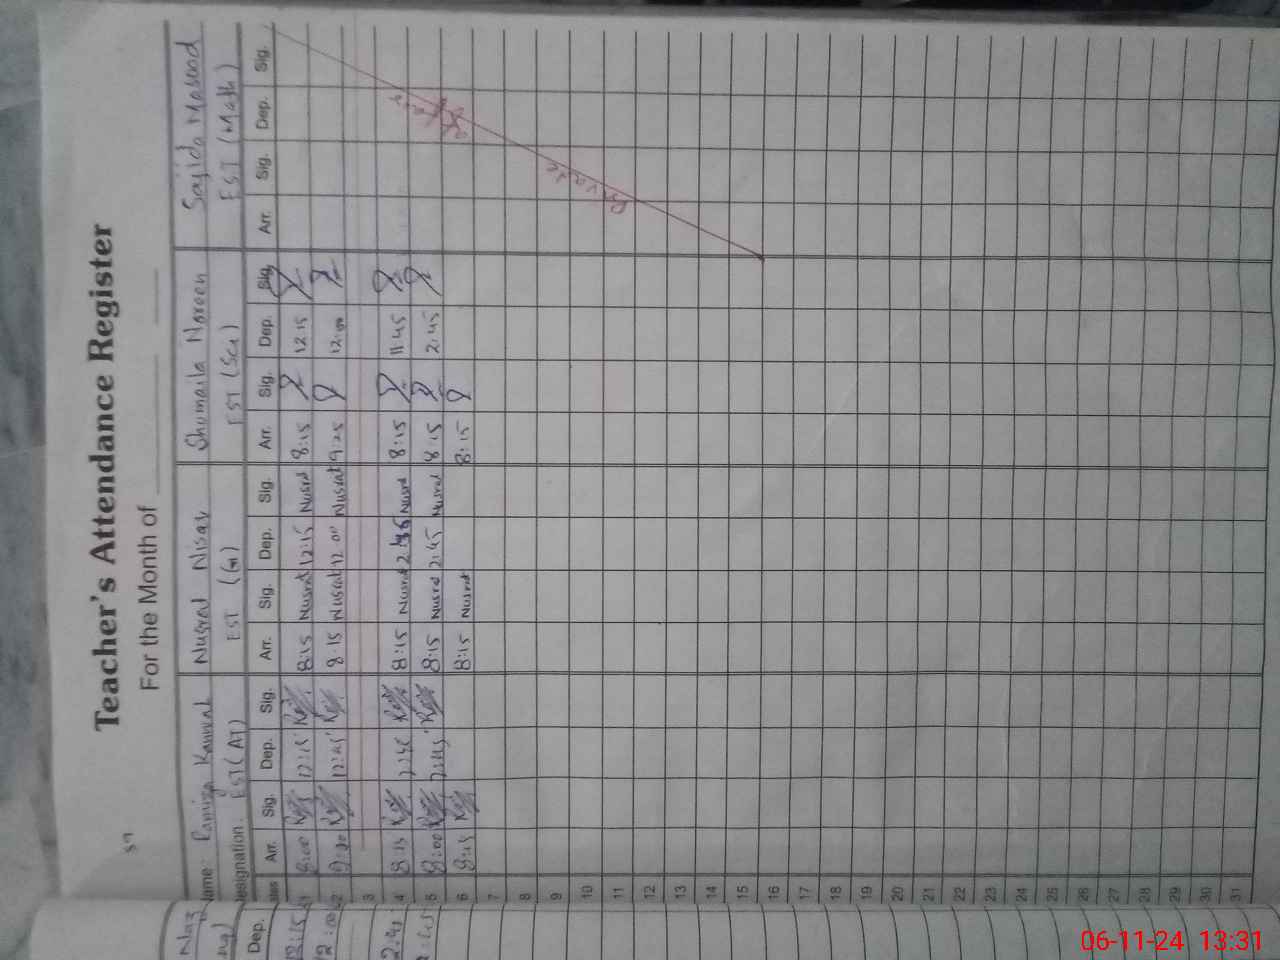 Teacher's Attendance Register
For the Month of
59
Name: Kanwal Nusrat Nisar Shumaila Noreen Sajida Masood
Designation. EST (AT) EST EST (Sci) EST (Math)
Dep. Arr. Sig. Dep. Sig. Arr. Sig. Dep. Sig. Arr. Sig. Dep. Sig. Arr. Sig. Dep. Sig.
12:15 1 8:00 12:15 8:15 Nusrat 12:15 Nusrat 8:15 12:15
12:00 2 9:20 12:45 8:15 Nusrat 12:00 Nusrat 9:25 12:00
3
2:45 4 8:15 2:45 8:15 Nusrat Nusrat 8:15 11:45
2:45 5 8:00 2:45 8:15 Nusrat 2:45 Nusrat 8:15 2:45
6 8:15 8:15 Nusrat 8:15
7
8
9
10
11
12
13
14
15
16
17
18
19
20
21
22
23
24
25
26
27
28
29
30
31
Private
06-11-24 13:31